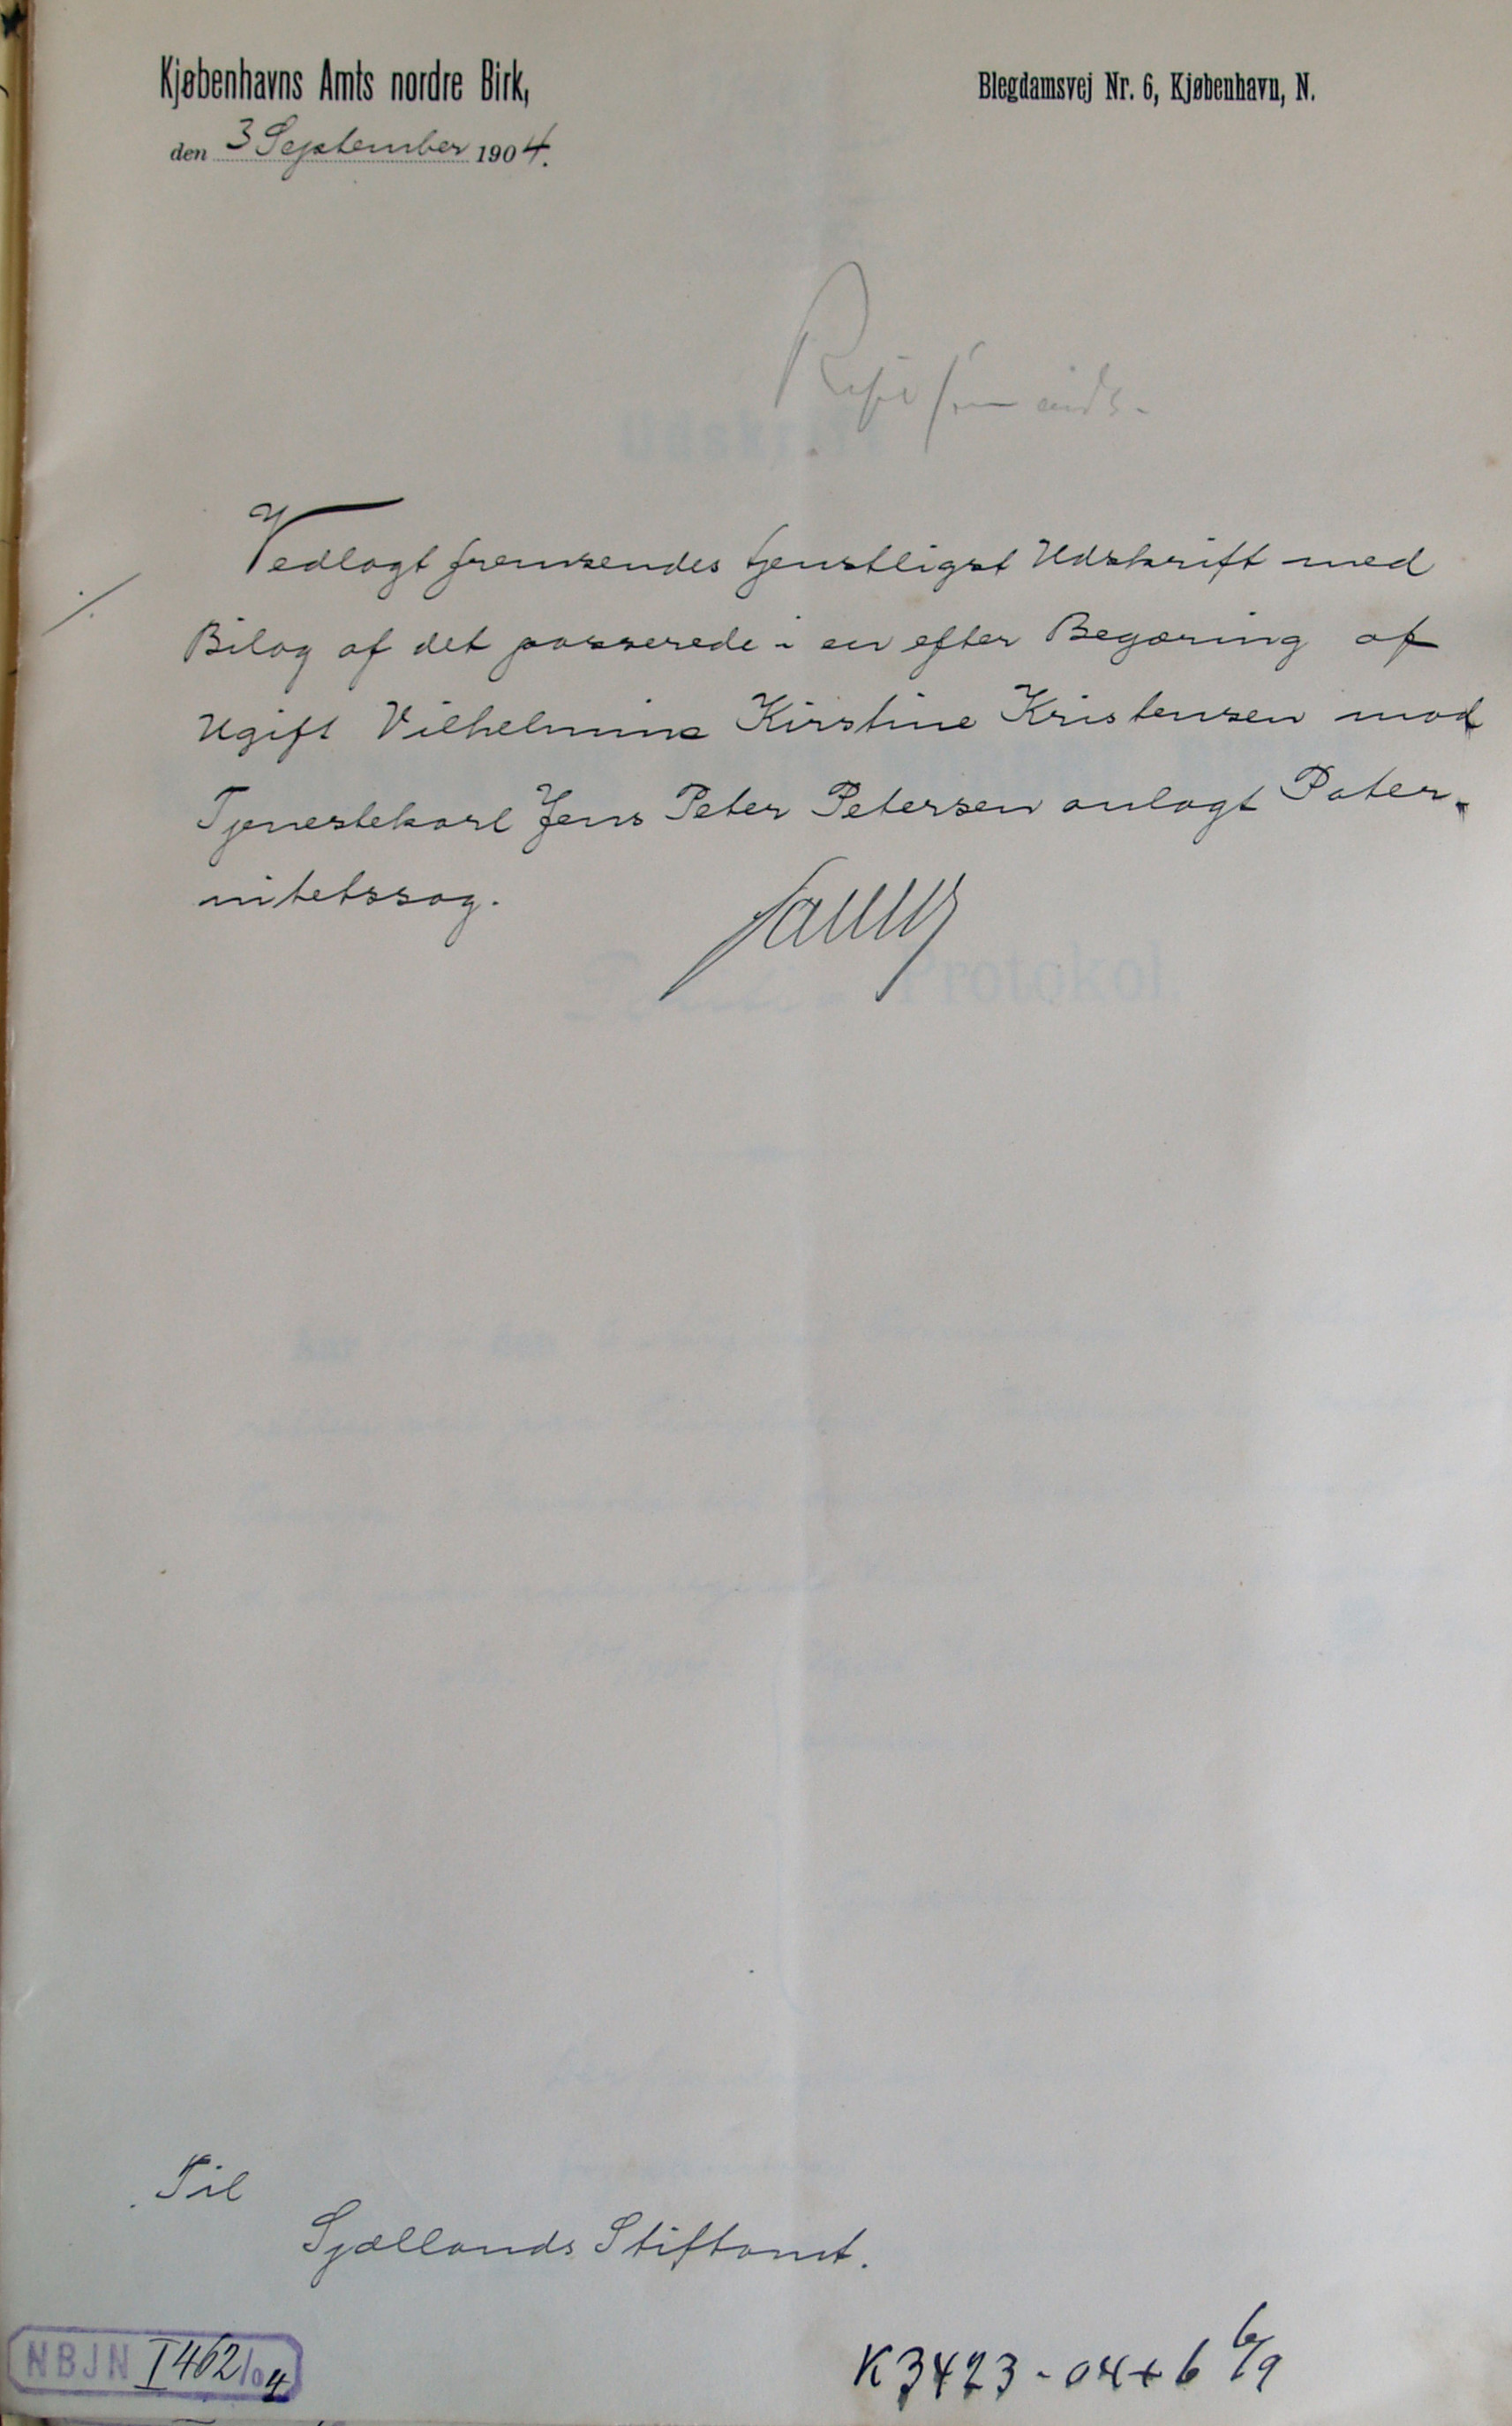 Kjøbenhavns Amts nordre Birk,
Blegdamsvej Nr. 6, Kjøbenhavn, N.
den 3 September 1904.
Vedlagt fremsendes tjenstligst Udskrift med
./.
Bilag af det passerede i en efter Begæring af
Ugift Vilhelmine Kirstine Kristensen mod
Tjenestekarl Jens Peter Petersen anlagt Pater-
nitetssag.
Protokol
Til
Sjællands Stiftamt.
NBJN I 462/04
K 3423-04+6 6/9